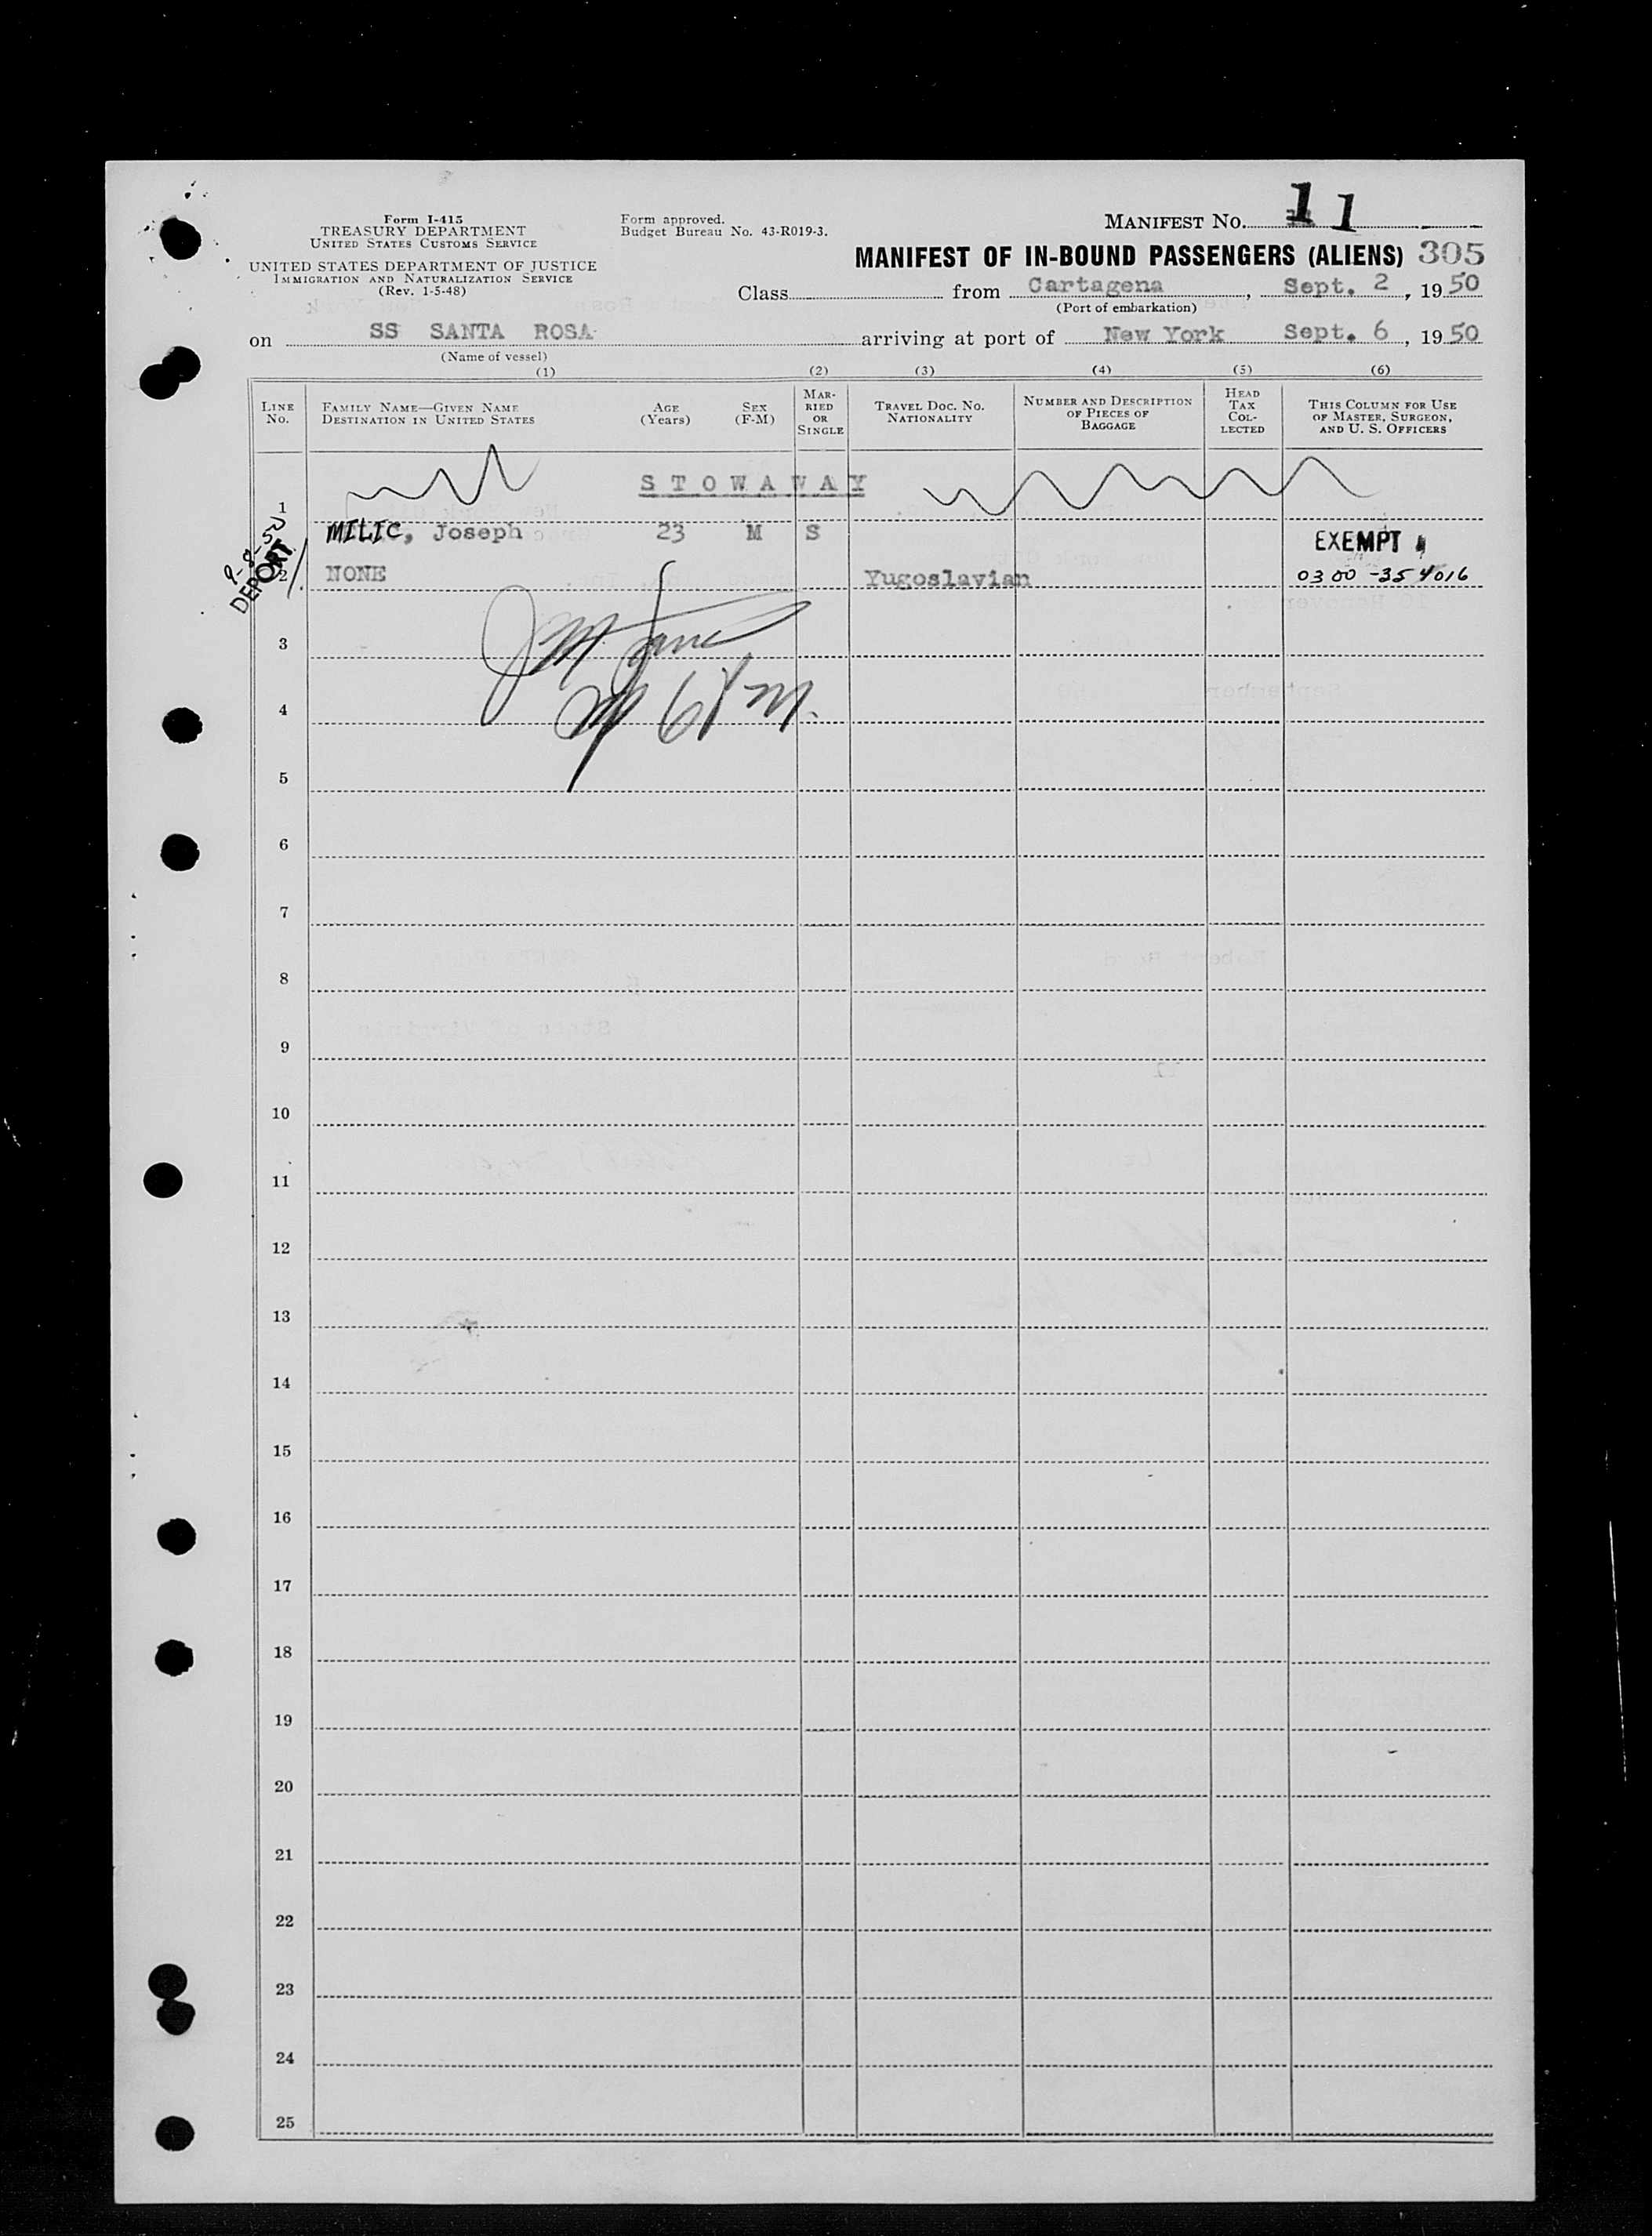 Form I-415
TREASURY DEPARTMENT
UNITED STATES CUSTOMS SERVICE
UNITED STATES DEPARTMENT OF JUSTICE
IMMIGRATION AND NATURALIZATION SERVICE
(Rev. 1-5-48)
Form approved.
Budget Bureau No. 43-R019-3.
MANIFEST No. 11
MANIFEST OF IN-BOUND PASSENGERS (ALIENS) 305
Class from Cartagena, Sept. 2, 1950
(Port of embarkation)
on SS SANTA ROSA arriving at port of New York Sept. 6, 1950
(Name of vessel)
(1) (2) (3) (4) (5) (6)
LINE No.
FAMILY NAME—GIVEN NAME
DESTINATION IN UNITED STATES
AGE (Years)
SEX (F-M)
MARRIED OR SINGLE
TRAVEL DOC. No.
NATIONALITY
NUMBER AND DESCRIPTION OF PIECES OF BAGGAGE
HEAD TAX COLLECTED
THIS COLUMN FOR USE OF MASTER, SURGEON, AND U. S. OFFICERS
STOWAWAY
1
MILIC, Joseph 23 M S EXEMPT
9-8-50
DEPORT
2 NONE Yugoslavian 0300-354016
3
4
5
6
7
8
9
10
11
12
13
14
15
16
17
18
19
20
21
22
23
24
25